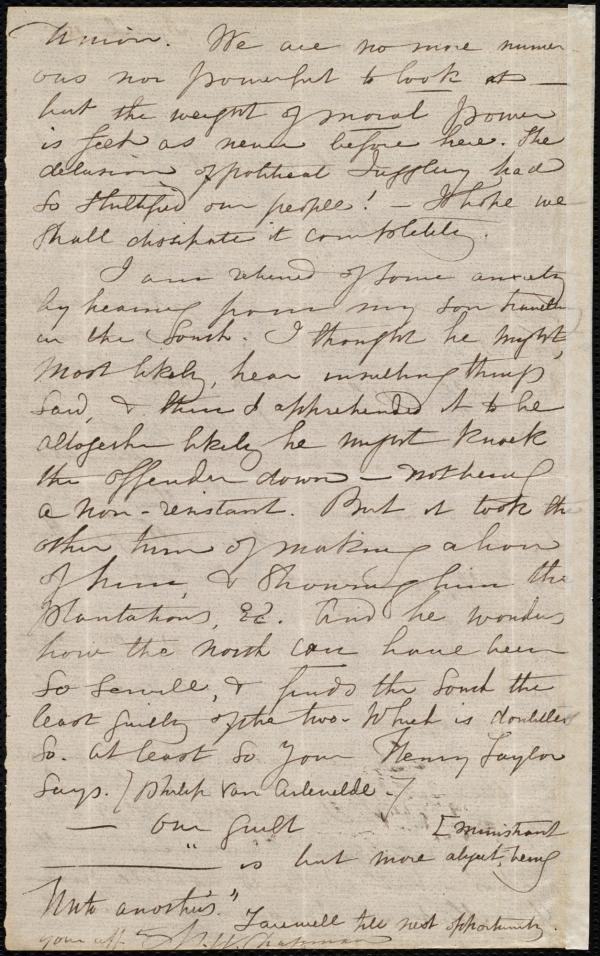 Union. We are no more numer
ous nor powerful to look at —
but the weight of moral power
is felt as never before here. The
delusion of political Juggling had
so stultified our people! — I hope we
shall dissipate it completely.
I am relieved of some anxiety
by hearing from my son travelling
in the South. I thought he might,
most likely, hear insulting things
said, & then I apprehended it to be
altogether likely he might knock
the offender down — not being
a non-resistant. But it took the
other turn of making a lion
of him, & showing him the
plantations, &c. And he wonders
how the north can have been
so servile, & finds the South the
least guilty of the two. Which is doubtless
so. At least so your Henry Taylor
says. [Philip Van Artevelde.]
— Our guilt
" is but more abject, being [ministrant
Unto another's."
Farewell till next opportunity.
your aff. M. W. Chapman